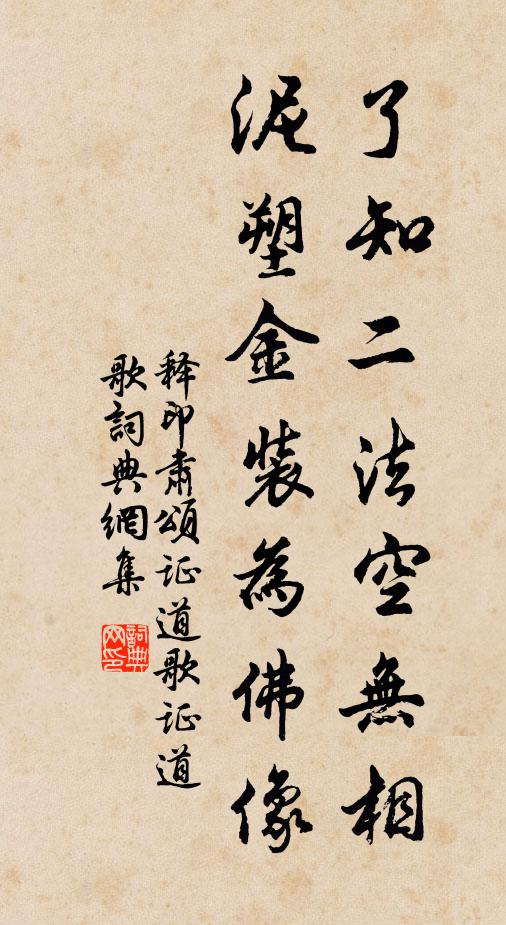 了知二法空無相
泥塑金裝為佛像
释印肅頌证道歌证道
歌詞典網集
詞典
网印